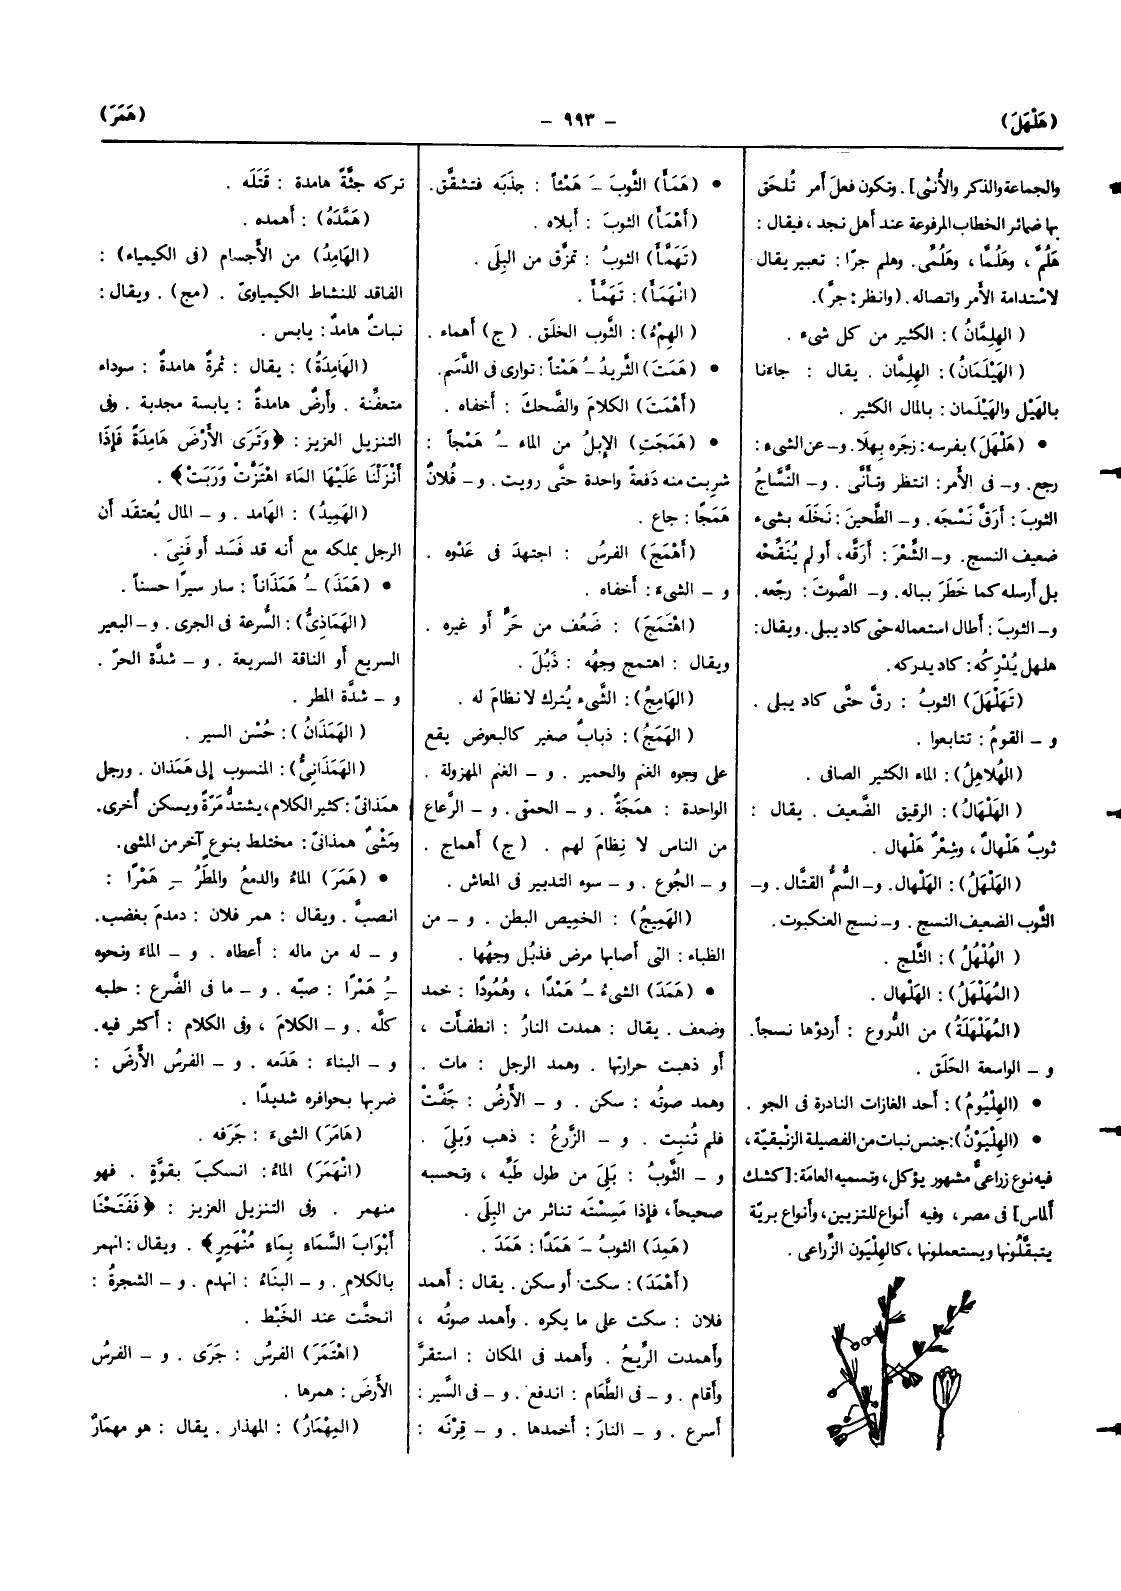 (هَلْهَلَ)
– ٩٩٣ –
(هَمَرَ)
والجماعة والذكر والأُنثى] . وتكون فعلَ أمر تُلحَق
بها ضمائر الخطاب المرفوعة عند أهل نجد ، فيقال :
هَلُمَّ ، وهَلُمَّا ، وهَلُمِّى. وهلم جرّا : تعبير يقال
لاسْتدامة الأمر واتصاله. (وانظر : جرَّ).
( الهِلِمَّانُ ) : الكثير من كل شىء .
(الهَيْلَمَانُ) : الهِلِمَّان . يقال : جاءَنا
بالهَيْل والهَيْلَمان : بالمال الكثير .
• (هَلْهَلَ) بفرسه : زجَره بهلا. و– عن الشىء :
رجع. و– فى الأَمر : انتظر وتأَنَّى . و– النَّسَّاجُ
الثوبَ : أَرَقَّ نَسْجَه. و– الطَّحينَ : نَخَلَه بشىء
ضعيف النسج. و– الشِّعْرَ : أَرَقَّه، أو لم يُنَقِّحْه
بل أرسله كما خَطَرَ بباله. و– الصَّوتَ : رجّعه.
و– الثوبَ : أطال استعماله حتى كاد يبلى. ويقال :
هلهل يُدْرِكُه : كاد يدركه.
(تَهَلْهَلَ) الثوبُ : رقَّ حتَّى كاد يبلى .
و – القومُ : تتابعوا .
(الهُلاهِلُ) : الماء الكثير الصافى .
( الهَلْهَالُ ) : الرقيق الضَّعيف . يقال :
ثوبٌ هَلْهالٌ ، وشِعْرٌ هَلْهال .
(الهَلْهَلُ) : الهَلهال. و– السُّمُّ القتَّال . و–
الثَّوب الضعيف النسج . و– نسج العنكبوت .
( الهُلْهُلُ ) : الثَّلج .
(المُهَلْهَلُ) : الهَلهال .
(المُهَلْهَلَةُ) من الدُّروع : أَردؤها نسجاً.
و – الواسعة الحَلَق .
• (الهِلْيُومُ) : أحد الغازات النادرة فى الجو .
• (الهِلْيَوْنُ) : جنس نبات من الفصيلة الزَّنْبقيّة ،
فيه نوع زراعىٌّ مشهور يؤكل، وتسميه العامة : [كشك
ألماس] فى مصر، وفيه أنواع للتزيين، وأنواع بريّة
يتبقَّلُونها ويستعملونها ، كالهِلْيَون الزِّراعى .
• (هَمَأَ) الثَّوبَ ـَ هَمْئاً : جذَبَه فتشقَّق.
(أَهْمَأَ) الثوبَ : أبلاه .
(تَهَمَّأَ) الثوبُ : تمزَّق من البِلَى .
(انْهَمَأَ) : تَهَمَّأَ .
(الهِمْءُ) : الثَّوب الخلَق . (ج) أهماء .
• (هَمَتَ) الثَّريدُ ـُ هَمْتاً : توارى فى الدَّسَم.
(أَهْمَتَ) الكلامَ والضَّحكَ : أخفاه .
• (هَمَجَتِ) الإبلُ من الماء ـُ هَمْجاً :
شربت منه دَفعةً واحدة حتَّى رويت . و– فُلانٌ
هَمَجًا : جاع .
(أَهْمَجَ) الفرسُ : اجتهدَ فى عَدْوه .
و – الشىءَ : أخفاه .
(اهْتَمَجَ) : ضَعُف من حَرٍّ أو غيره .
ويقال : اهتمج وجهُه : ذَبُلَ .
(الهَامِجُ) : الشَّىء يُترك لا نظامَ له .
( الهَمَجُ) : ذبابٌ صغير كالبعوض يقع
على وجوه الغنم والحمير . و – الغنم المهزولة .
الواحدة : هَمَجَةٌ . و – الحمقى . و – الرَّعاع
من الناس لا نِظامَ لهم . (ج) أهماج .
و – الجُوع . و – سوء التدبير فى المعاش .
(الهَمِيجُ) : الخميص البطن . و – من
الظباء : التى أصابها مرض فذبُل وجهُها .
• (هَمَدَ) الشىءُ ـُ هَمْدًا ، وهُمُودًا : خمد
وضعف . يقال : همدت النارُ : انطفأت ،
أو ذهبت حرارتها . وهمد الرجل : مات .
وهمد صوتُه : سكن . و – الأرضُ : جَفَّتْ
فلم تُنبِت . و – الزَّرعُ : ذهب وَبَلِىَ .
و – الثَّوبُ : بَلِىَ من طول طَيِّه ، وتحسبه
صحيحاً، فإذا مَسِسْتَه تناثر من البِلَى .
(هَمِدَ) الثوبُ ـَ هَمَدًا : هَمَدَ .
(أَهْمَدَ) : سكت أو سكن. يقال : أهمد
فلان : سكت على ما يكره . وأهمد صوتُه ،
وأهمدت الرِّيحُ . وأهمد فى المكان : استقرَّ
وأقام . و – فى الطَّعام : اندفع . و – فى السَّير :
أسرع . و – النارَ : أخمدها . و – قِرْنَه :
تركه جثَّةً هامدة : قَتَلَه .
(هَمَّدَهُ) : أهمده .
(الهَامِدُ) من الأَجسام (فى الكيمياء) :
الفاقد للنشاط الكيمياوىّ . (مج) . ويقال :
نباتٌ هامدٌ : يابس .
(الهَامِدَةُ) : يقال : ثمرةٌ هامدةٌ : سوداء
متعفِّنة . وأرضٌ هامدةٌ : يابسة مجدبة . وفى
التنزيل العزيز : ﴿وَتَرَى الأَرْضَ هَامِدَةً فَإِذَا
أَنْزَلْنَا عَلَيْهَا المَاءَ اهْتَزَّتْ وَرَبَتْ﴾ .
(الهَمِيدُ) : الهامد . و – المال يُعتقَد أن
الرجل يملكه مع أنه قد فَسَد أو فَنِىَ .
• (هَمَذَ) ـُ هَمَذَاناً : سار سيرًا حسناً .
(الهَمَاذِىُّ) : السُّرعة فى الجرى . و– البعير
السريع أو الناقة السريعة . و – شدَّة الحرّ .
و – شدَّة المطر .
( الهَمَذَانُ ) : حُسْن السير .
(الهَمَذَانِىُّ) : المنسوب إلى هَمَذان . ورجل
همذانىّ : كثير الكلام، يشتدُّ مَرّةً ويسكن أُخرى.
ومَشْىٌ همذانىّ : مختلط بنوع آخر من المشى.
• (هَمَرَ) الماءُ والدمعُ والمطَرُ ـِ هَمْرًا :
انصبَّ . ويقال : همر فلان : دمدمَ بغضب.
و – له من ماله : أعطاه . و – الماءَ ونحوه
ـُِ هَمْرًا : صبّه . و – ما فى الضَّرع : حلبه
كلَّه . و – الكلامَ ، وفى الكلام : أكثر فيه.
و – البناءَ : هَدَمه . و – الفرسُ الأَرضَ :
ضربها بحوافره شديدًا .
(هَامَرَ) الشىءَ : جَرَفه .
(انْهَمَرَ) الماءُ : انسكبَ بقوَّةٍ . فهو
منهمر . وفى التنزيل العزيز : ﴿فَفَتَحْنَا
أَبْوَابَ السَّمَاءِ بِمَاءٍ مُنْهَمِرٍ﴾ . ويقال : انهمر
بالكلام . و – البنَاءُ : انهدم . و – الشجرةُ :
انحتَّت عند الخَبْط .
(اهْتَمَرَ) الفرسُ : جَرَى . و – الفرسُ
الأَرضَ : همرها .
(المِهْمَارُ) : المهذار . يقال : هو مهمَارٌ